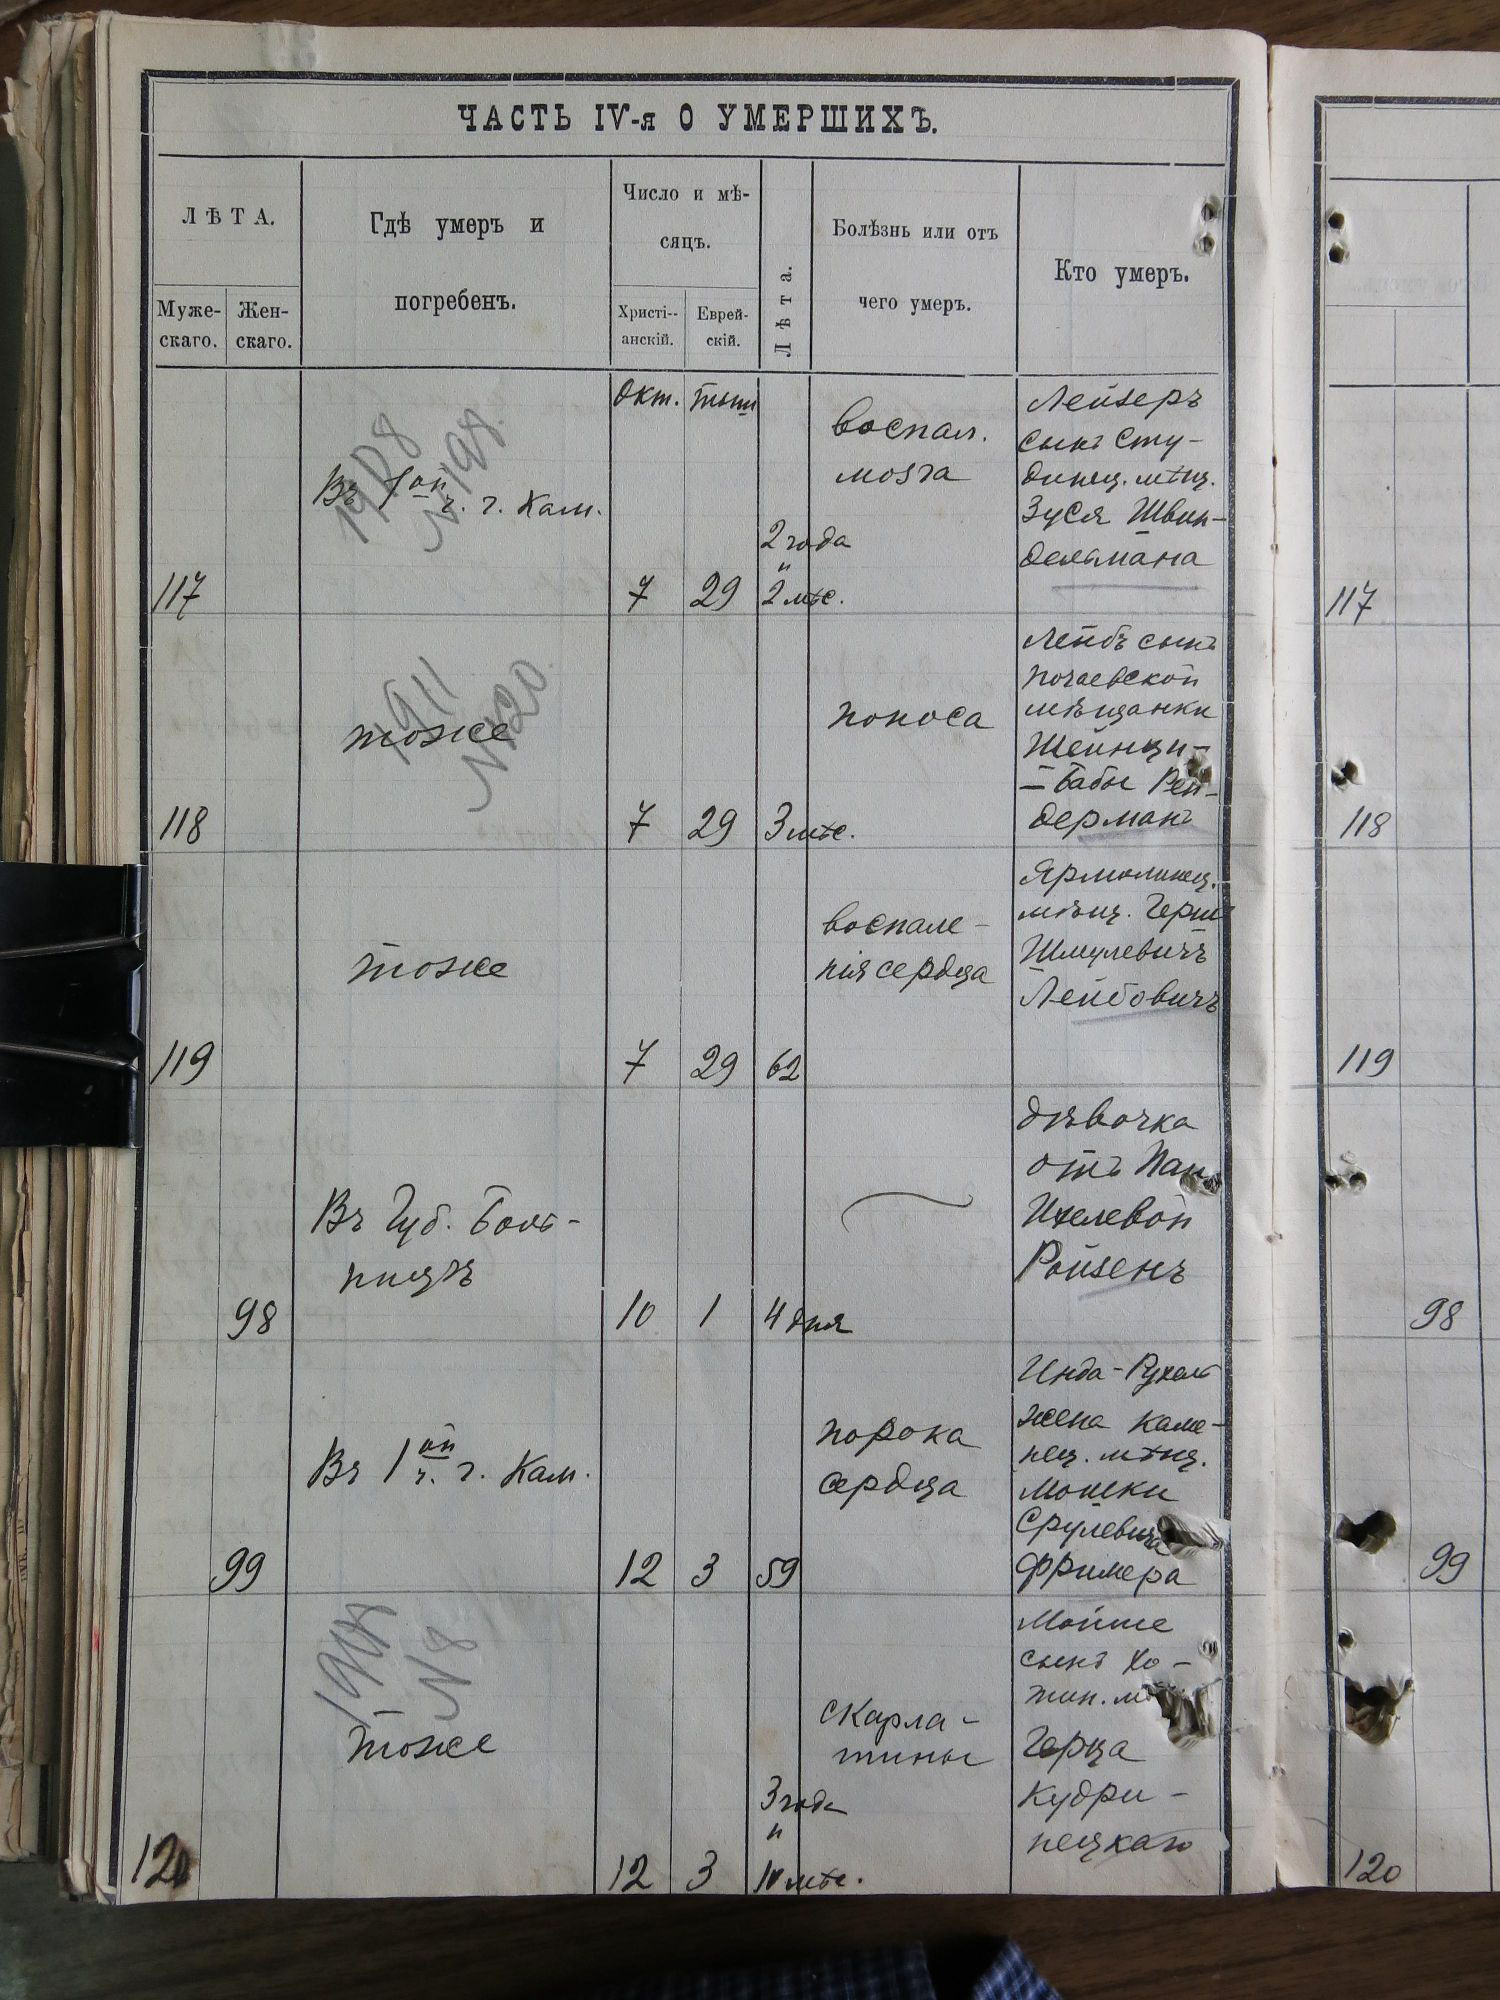 ЧАСТЬ IV-я О УМЕРШИХЪ.
ЛѢТА.
Муже-
скаго.
Жен-
скаго.
Гдѣ умеръ и
погребенъ.
Число и мѣ-
сяцъ.
Христі--
анскій.
Еврей-
скій.
Лѣта.
Болѣзнь или отъ
чего умеръ.
Кто умеръ.
Окт.
1908
N 198.
Въ 1ой ч. г. Кам.
117
7
29
2 года
и
2 мѣс.
воспал.
мозга
Лейзеръ
сынъ Сту-
дениц. мѣщ.
Зуся Швин-
дельмана
117
1911
N 120.
тоже
118
7
29
3 мѣс.
поноса
Лейбъ сынъ
Почаевской
мѣщанки
Шейнци-
-Бабы
дерманъ
118
тоже
119
7
29
62
воспале-
нія сердца
Ярмолинец.
мѣщ. Герш
Шмулевичъ
Лейбовичъ
119
Въ Губ. Боль-
ницѣ
98
10
1
4 дня
дѣвочка
отъ
Ицелевой
Ройзенъ
98
Въ 1ой ч. г. Кам.
99
12
3
59
порока
сердца
Инда-Рухель
жена Каме-
нец. мѣщ.
Мошки
Срулевича
Фримера
99
N 8
тоже
120
12
3
3 года
и
10 мѣс.
скарла-
тины
Мойше
сынъ Хо-
тин.
Герца
Кудри-
нецкаго
120